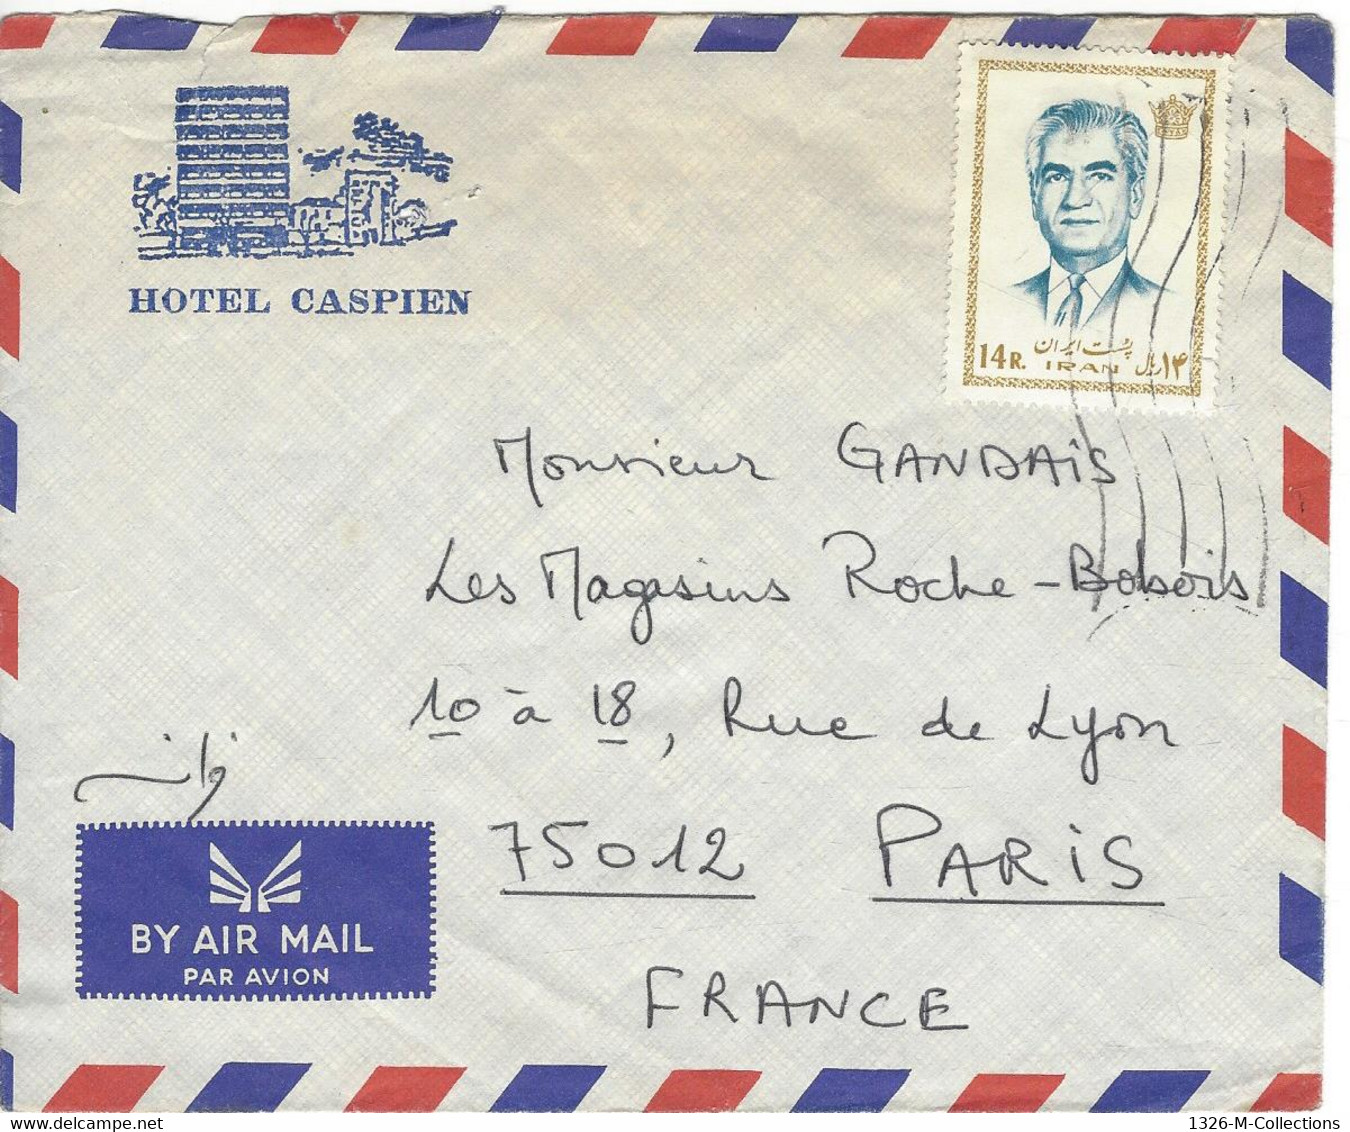 HOTEL CASPIEN
پست ایران
14 R. IRAN ۱۴ ریال
Monsieur GANDAIS
Les Magasins Roche-Bobois
10 à 18, Rue de Lyon
75012 PARIS
FRANCE
فرانسه
BY AIR MAIL
PAR AVION
1326-M-Collections